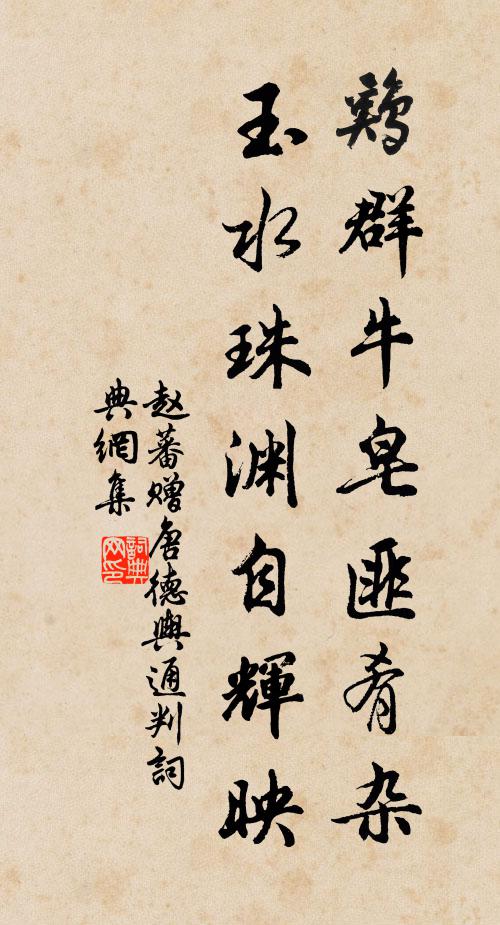 鷄群牛皂匪肴杂
玉水珠渊自輝映
赵蕃赠唐德興通判詞
典網集
詞典
网印